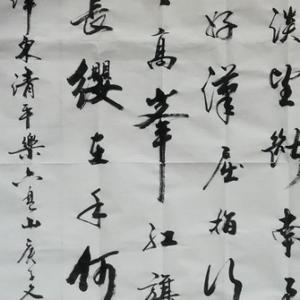 淡望斷南
好漢屈指行
高峯紅旗
長纓在手何
澤東清平樂六盘山